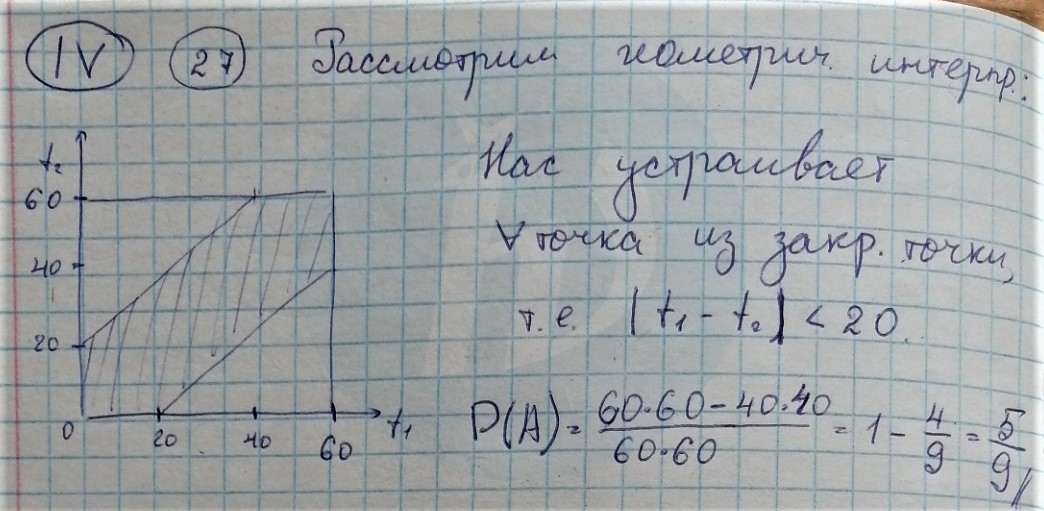 IV 27 Рассмотрим геометрич. интерпр.:
t₂
60
40
20
0 20 40 60 t₁
Нас устраивает
∀ точка из закр. точки,
т.е. |t₁ - t₂| < 20.
P(A) = (60·60 - 40·40)/(60·60) = 1 - 4/9 = 5/9 //